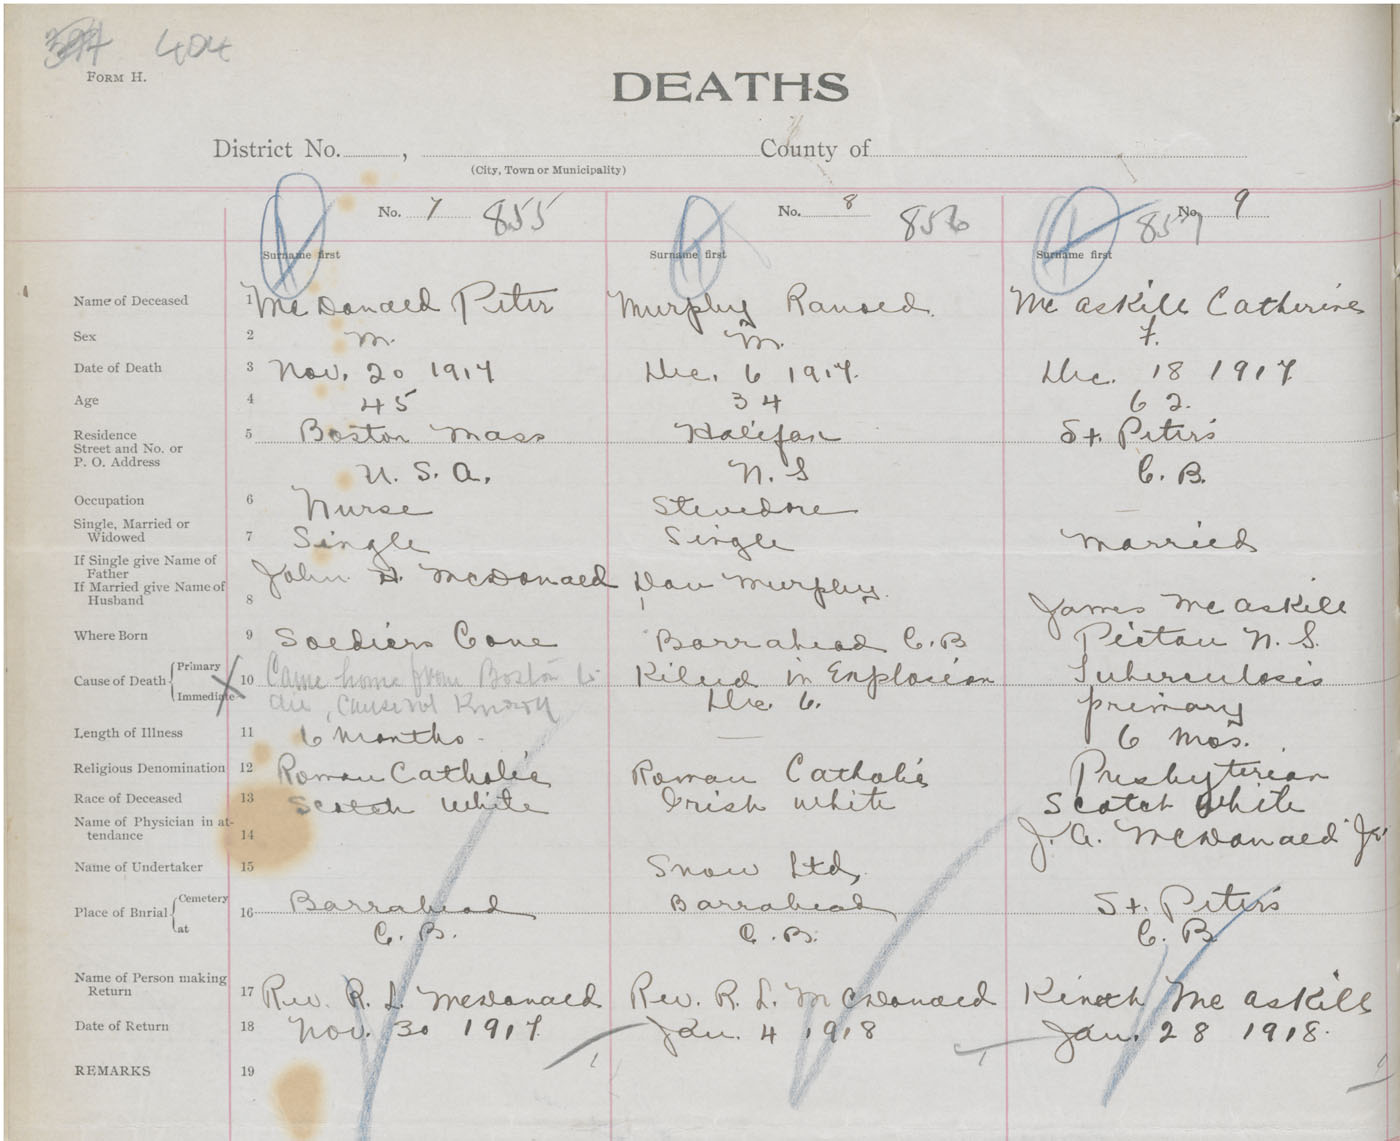 404
FORM H.
DEATHS
District No. , County of
(City, Town or Municipality)
No. 7 855 No. 8 856 857 No. 9
Surname first Surname first Surname first
Name of Deceased 1 McDonald Peter Murphy Ranoed Mc askill Catherine
Sex 2 m. m. F.
Date of Death 3 Nov. 20 1917 Dec. 6 1917. Dec. 18 1917
Age 4 45 34 62.
Residence 5 Boston Mass Halifax St. Peters
Street and No. or
P. O. Address U. S. A. N. S C. B.
Occupation 6 Nurse Stevedore —
Single, Married or
Widowed 7 Single Single Married
If Single give Name of
Father John McDonald Dan Murphy.
If Married give Name of
Husband 8 James Mc askill
Where Born 9 Soldiers Cove Barrahead C. B Pictou N. S.
Cause of Death Primary 10 Came home from Boston to Killed in Explosion Tuberculosis
Immediate die, cause not known Dec 6. primary
Length of Illness 11 6 Months - — 6 mos.
Religious Denomination 12 Roman Catholic Roman Catholic Presbyterian
Race of Deceased 13 Scotch White Irish White Scotch White
Name of Physician in at-
tendance 14 J. A. McDonald Jr
Name of Undertaker 15 Snow Ltd,
Place of Burial Cemetery 16 Barrahead Barrahead St. Peters
at C. B. C. B. C. B
Name of Person making
Return 17 Rev. R. L. McDonald Rev. R. L. McDonald Mc askill
Date of Return 18 Nov. 30 1917. Jan. 4 1918 Jan. 28 1918.
REMARKS 19